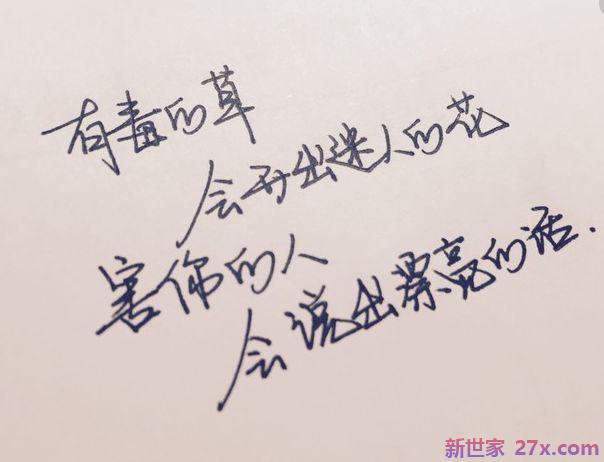 有毒的草
会开出迷人的花
害你的人
会说出漂亮的话.
新世家 27x.com